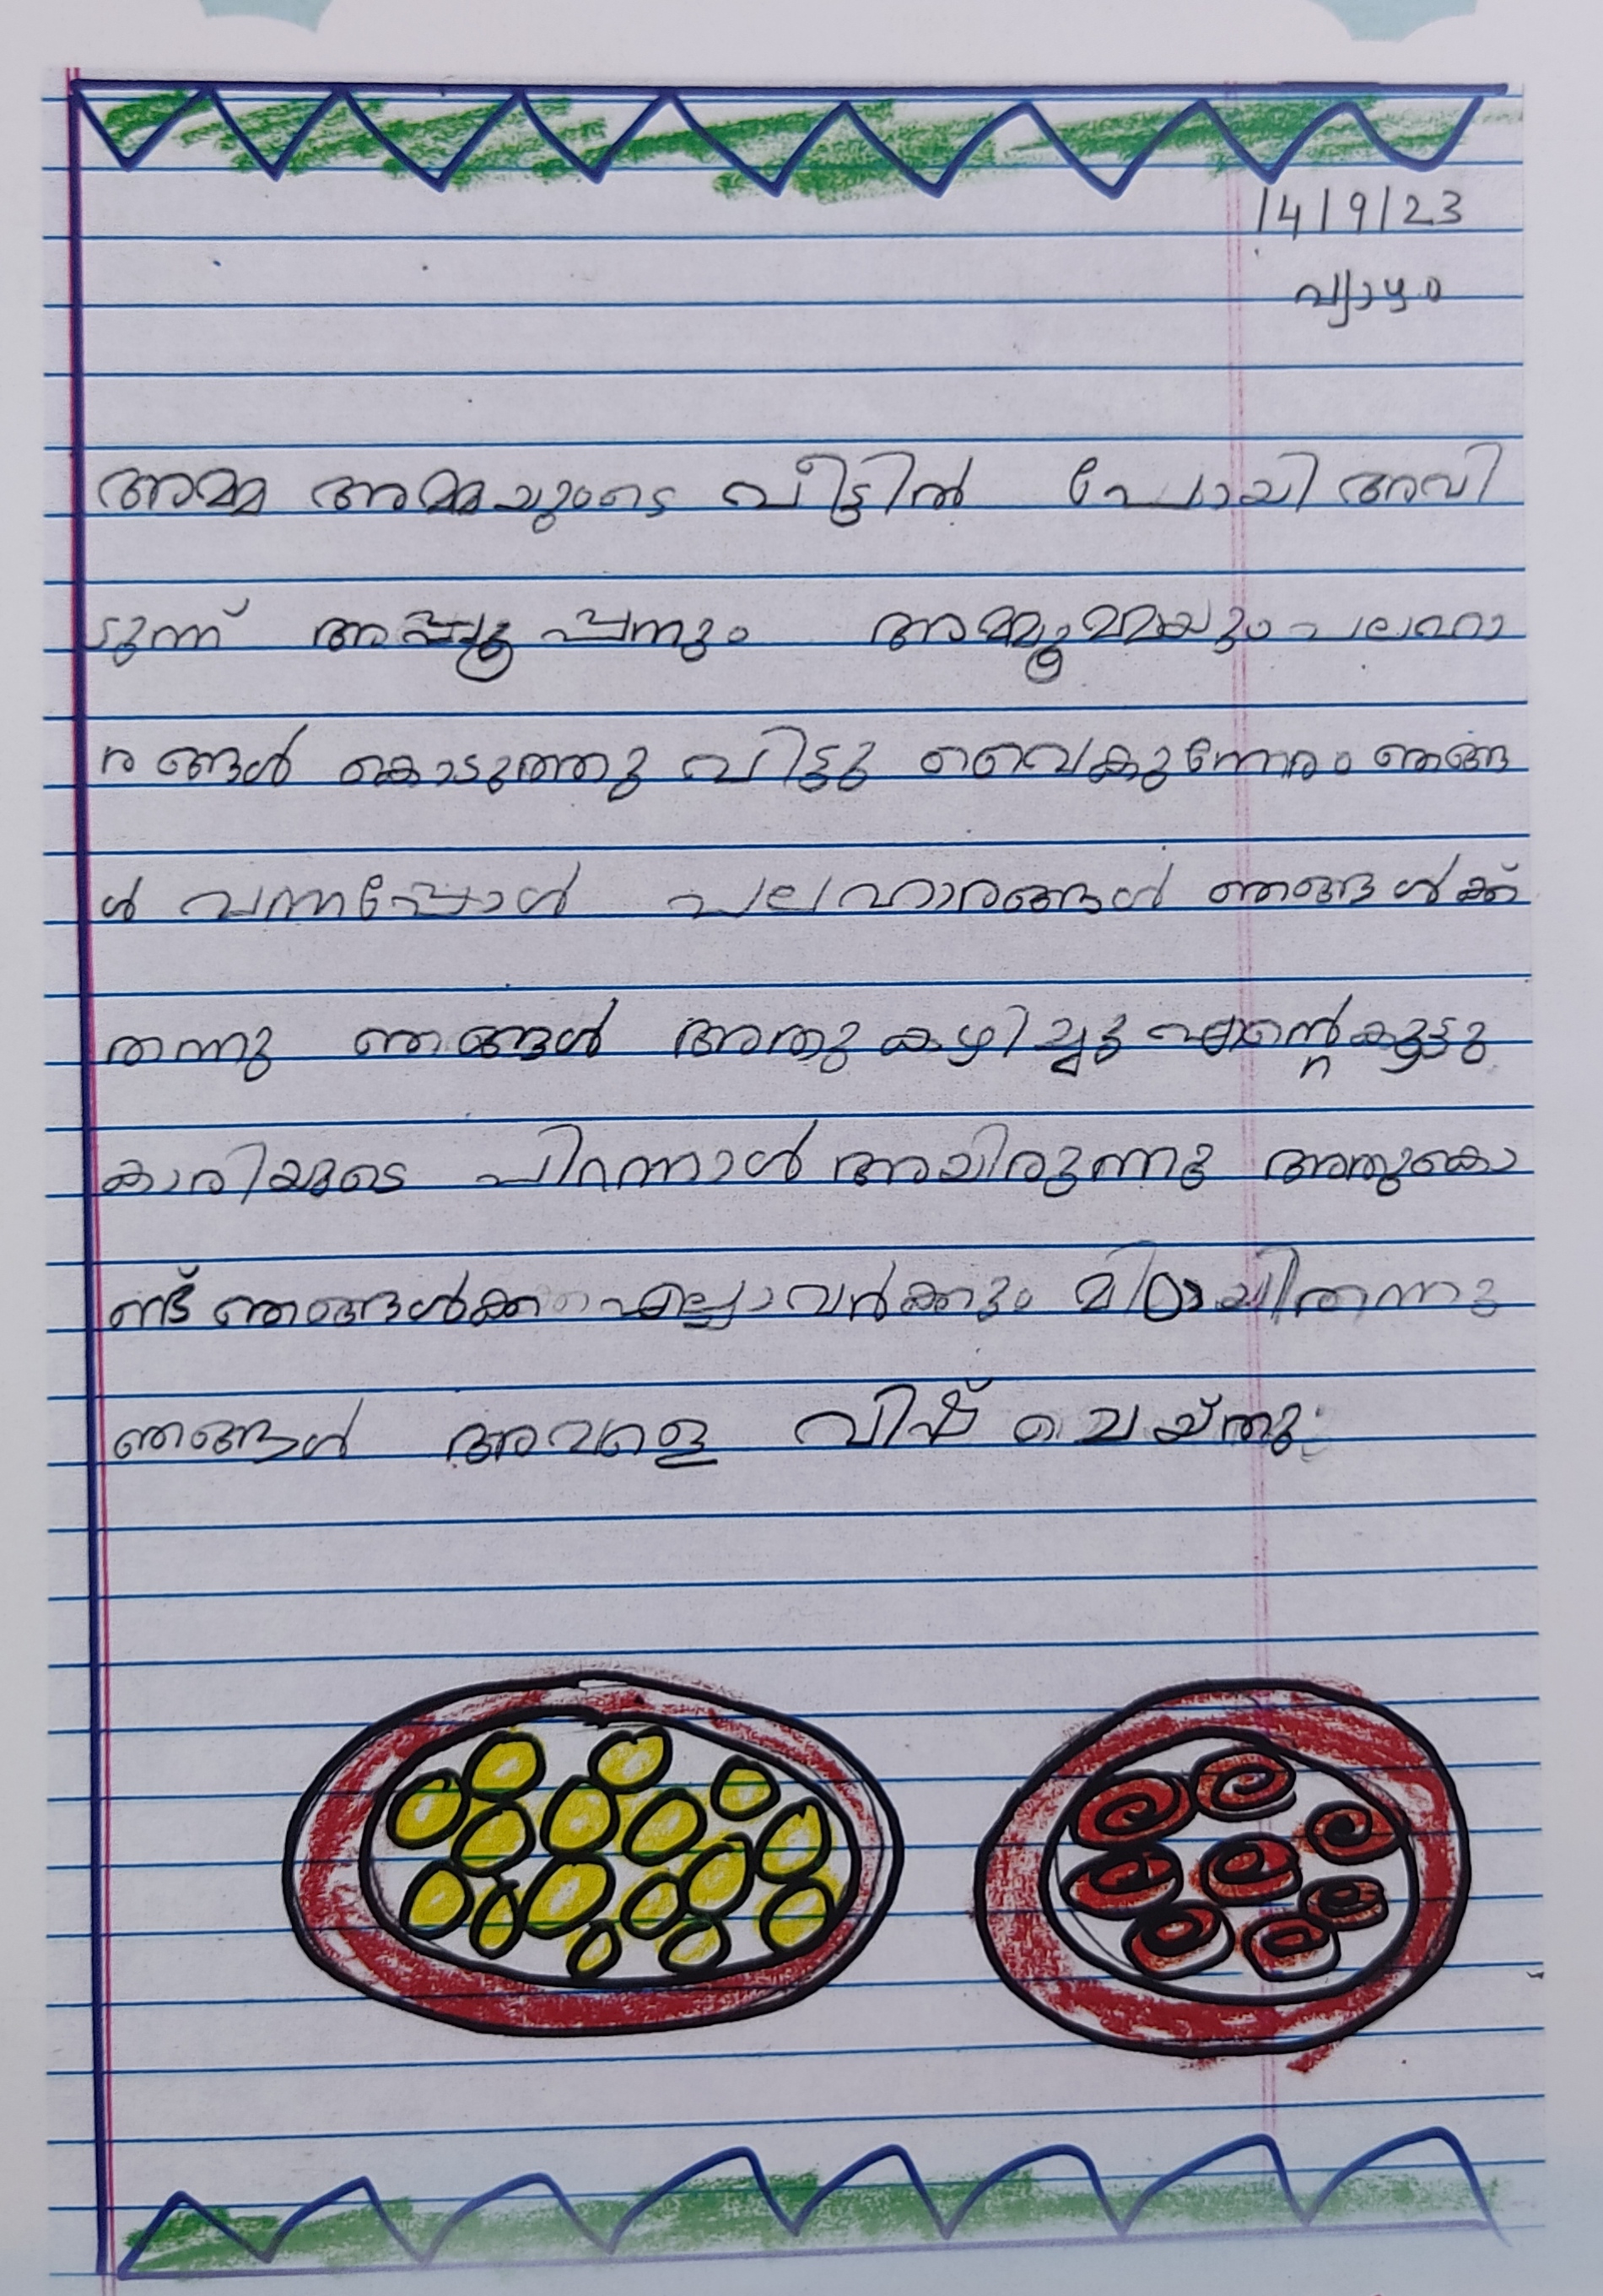 14/9/23
വ്യാഴം
അമ്മ അമ്മയുടെ വീട്ടിൽ പോയി അവി
ടുന്ന് അപ്പൂപ്പനും അമ്മൂമ്മയും പലഹാ
രങ്ങൾ കൊടുത്തു വിട്ടു വൈകുന്നേരം ഞങ്ങ
ൾ വന്നപ്പോൾ പലഹാരങ്ങൾ ഞങ്ങൾക്ക്
തന്നു ഞങ്ങൾ അതു കഴിച്ചു എന്റെ കൂട്ടു
കാരിയുടെ പിറന്നാൾ അയിരുന്നു അതുകൊ
ണ്ട് ഞങ്ങൾക്ക എല്ലാവർക്കും മിഠായി തന്നു
ഞങ്ങൾ അവളെ വിഷ് ചെയ്തു